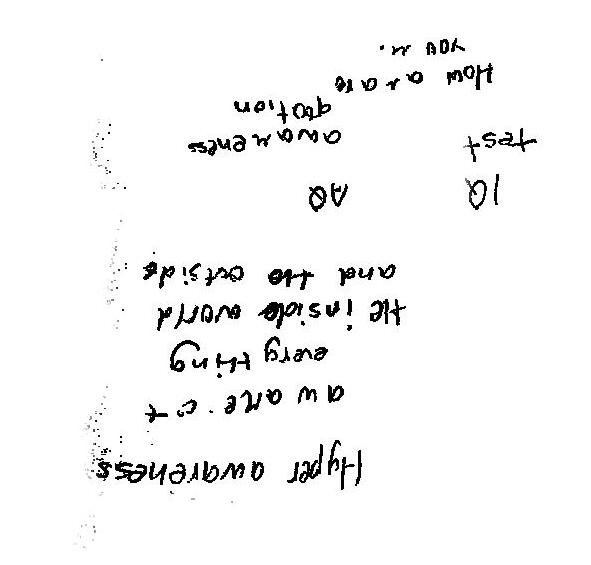 Hyper awareness
aware. of
every thing
the inside world
and the outside
IQ AQ
test awareness
qotion
How aware
you r.